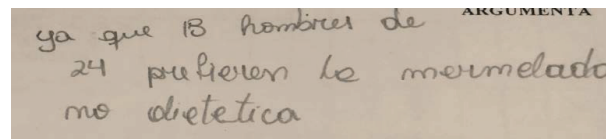 ARGUMENTA
ya que 13 hombres de
24 prefieren la mermelada
no dietetica